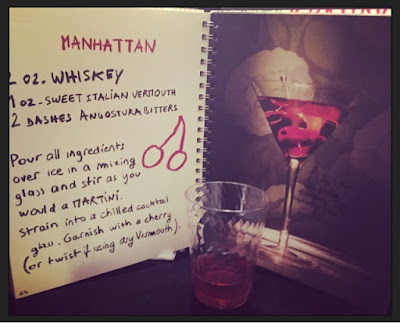 MANHATTAN
2 OZ. WHISKEY
1 OZ - SWEET ITALIAN VERMOUTH
2 DASHES ANGOSTURA BITTERS
Pour all ingredients
over ice in a mixing
glass and stir as you
would a MARTINI.
Strain into a chilled cocktail
glass. Garnish with a cherry
(or twist if using dry Vermouth).